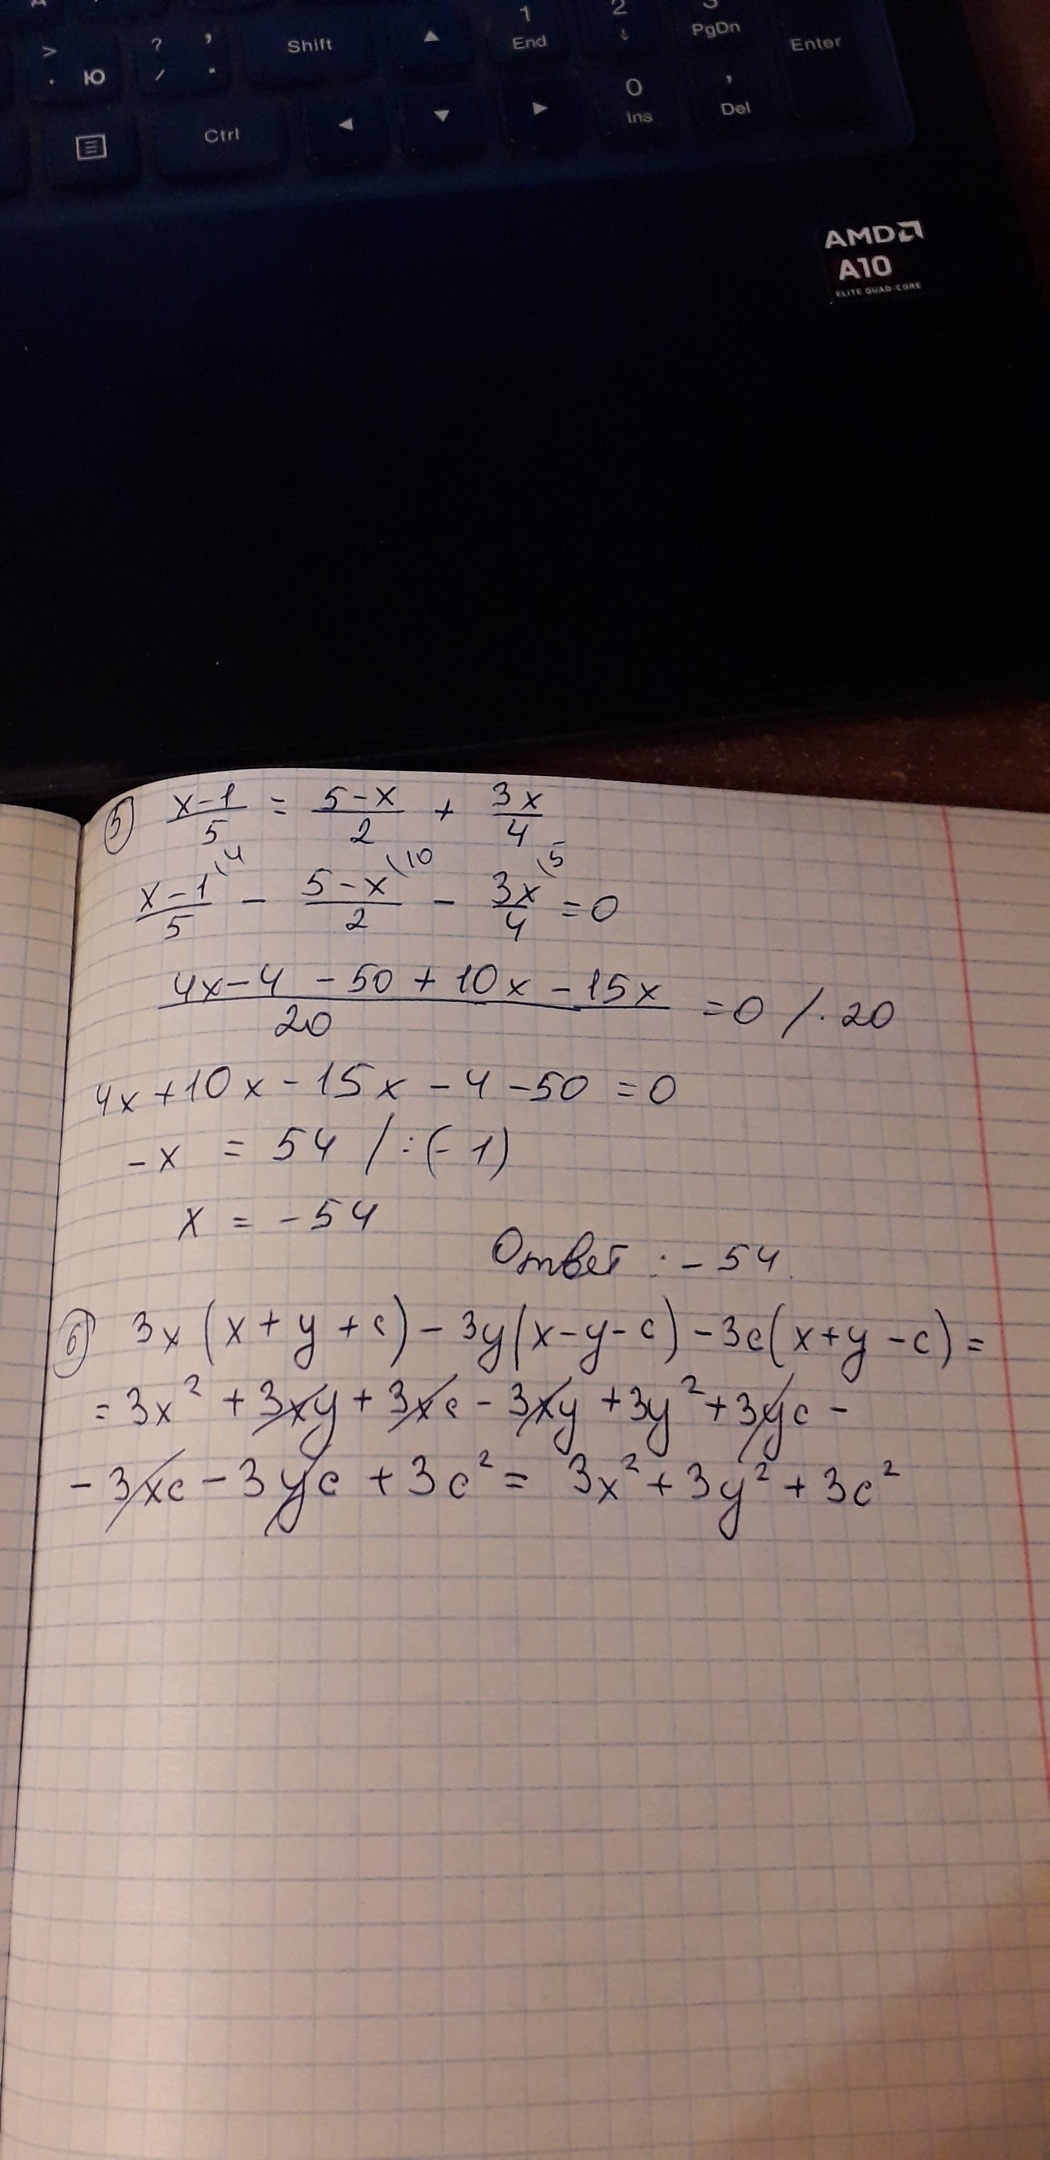 1 2 3
> ? , Shift ▲ End ↓ PgDn Enter
. Ю / .
0 ,
Ctrl ◄ ▼ ► Ins Del
AMD
A10
ELITE QUAD-CORE
⑤ (x-1)/5 = (5-x)/2 + 3x/4
(x-1)/5 \4 - (5-x)/2 \10 - 3x/4 \5 = 0
(4x-4-50+10x-15x)/20 = 0 /·20
4x+10x-15x-4-50=0
-x = 54 /:(-1)
x = -54
Ответ: -54.
⑥ 3x(x+y+c)-3y(x-y-c)-3c(x+y-c)=
=3x²+3xy+3xc-3xy+3y²+3yc-
-3xc-3yc+3c²=3x²+3y²+3c²